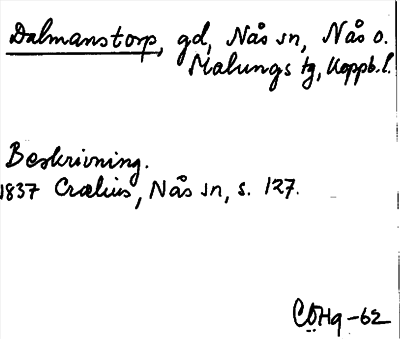 Dalmanstorp, gd, Nås sn, Nås o.
Malungs tg, Koppb.l.
Beskrivning.
1837 Crælius, Nås sn, s. 127.
CÖHg-62